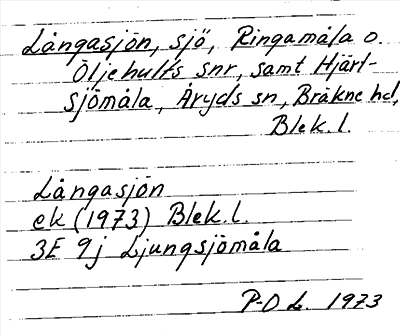 Långasjön, sjö, Ringamåla o.
Öljehults snr, samt Hjärt-
sjömåla, Åryds sn, Bräkne hd,
Blek.l.
Långasjön
ek (1973) Blek.l.
3E 9j Ljungsjömåla
P-O L. 1973